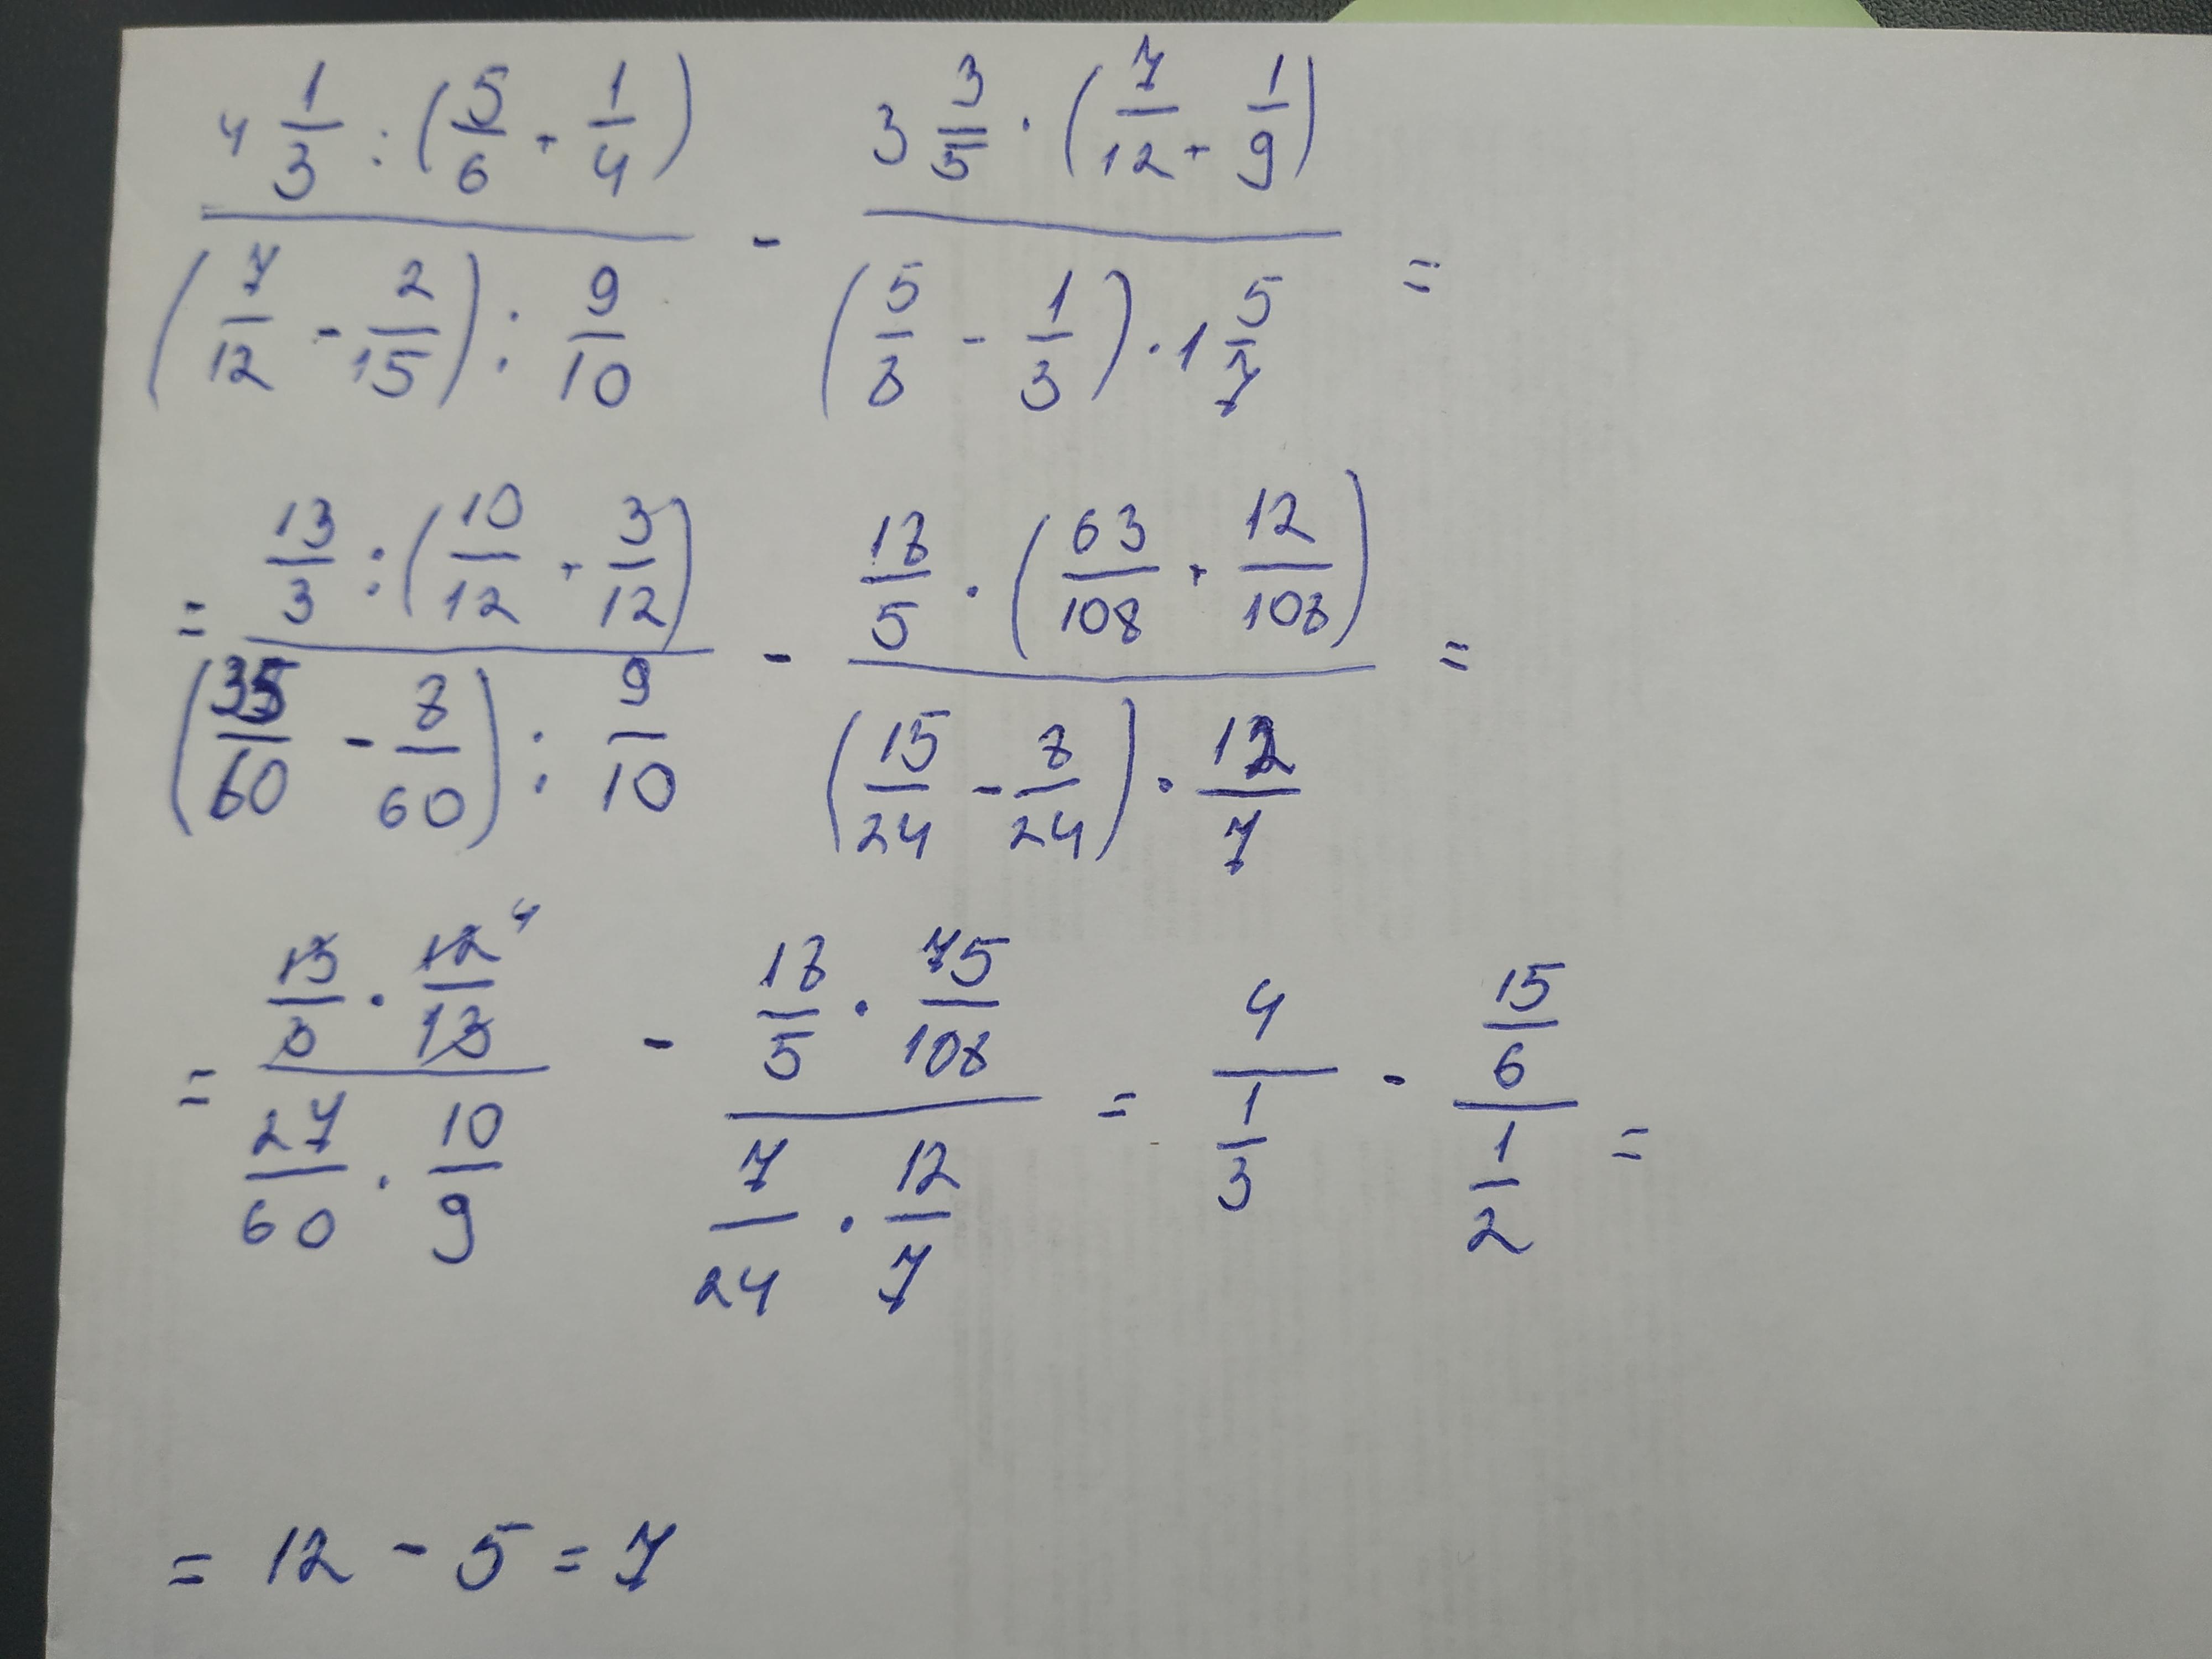 (4 1/3 : (5/6 + 1/4)) / ((7/12 - 2/15) : 9/10) - (3 3/5 · (7/12 + 1/9)) / ((5/8 - 1/3) · 1 5/7) =
= (13/3 : (10/12 + 3/12)) / ((35/60 - 8/60) : 9/10) - (18/5 · (63/108 + 12/108)) / ((15/24 - 8/24) · 12/7) =
= (13/3 · 12/13 4) / (27/60 · 10/9) - (18/5 · 75/108) / (7/24 · 12/7) = 4 / (1/3) - (15/6) / (1/2) =
= 12 - 5 = 7